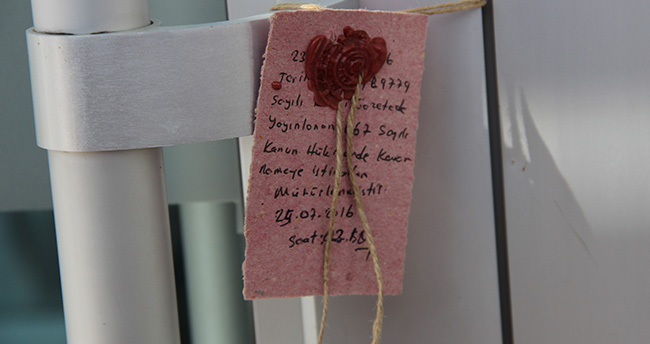 23 6
Tarih 29779
Sayılı Gazetede
Yayınlanan 667 Sayılı
Kanun Hükmünde Karar
nameye istinaden
Mühürlenmiştir
25.07.2016
Saat: